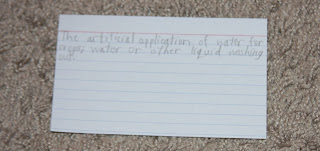 The artificial application of water for
crops, water or other liquid washing
out.